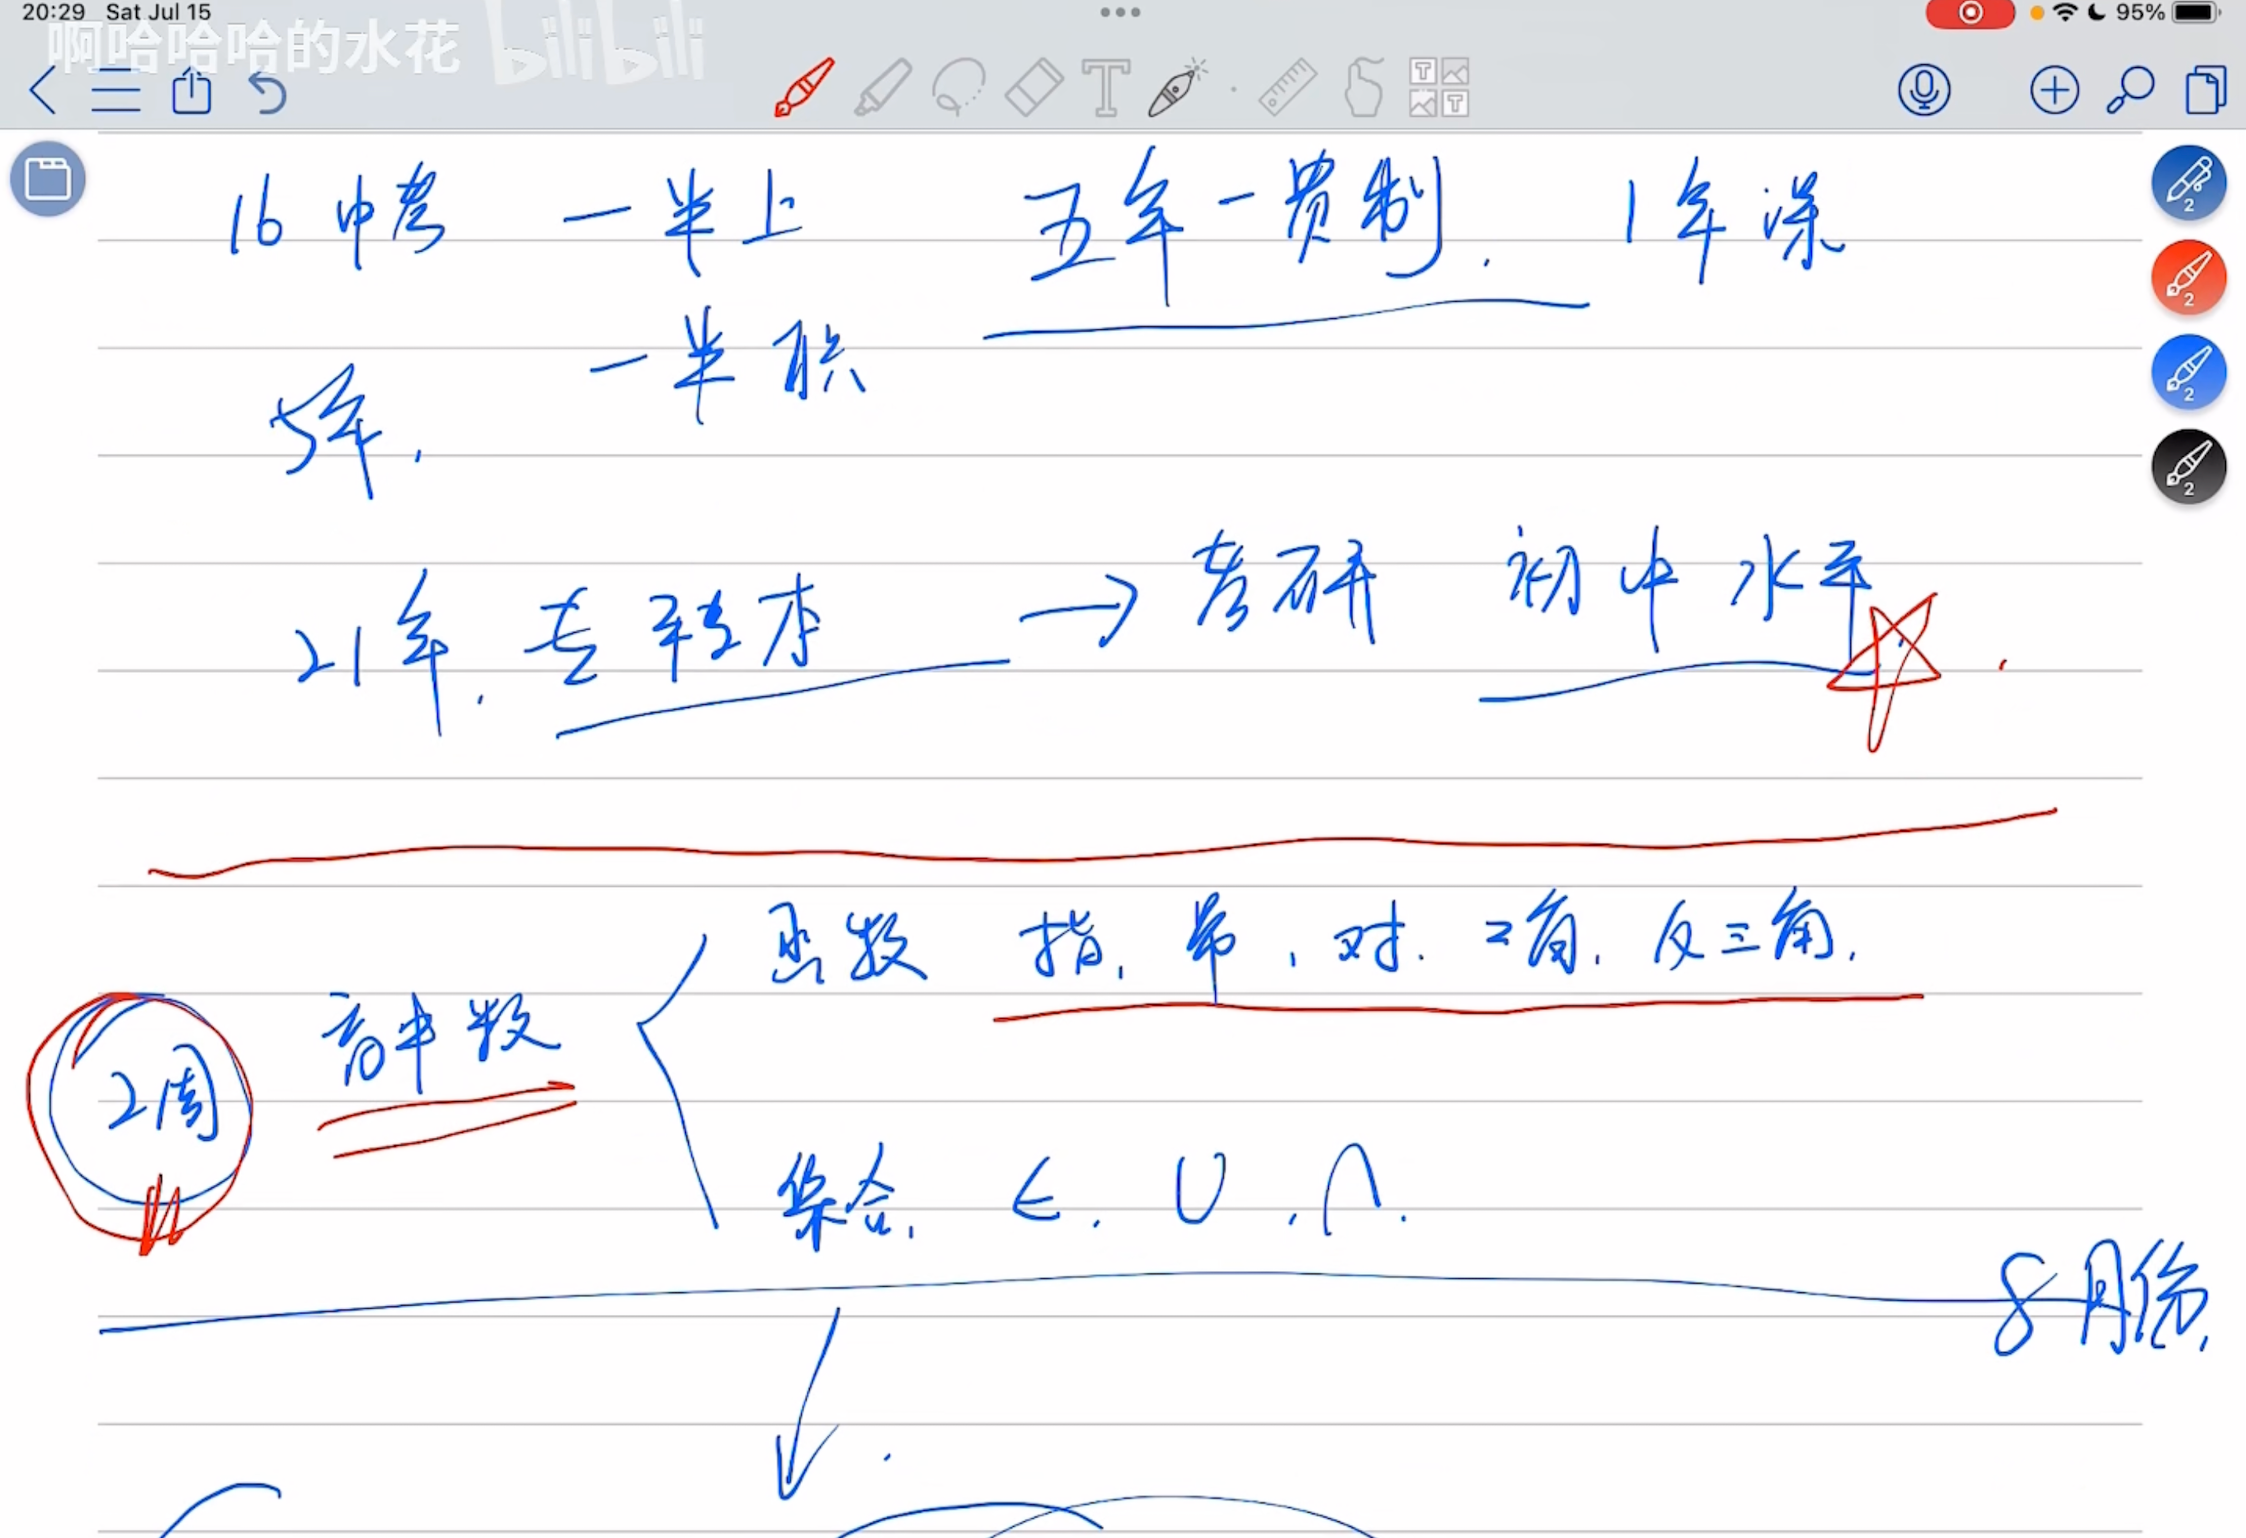 20:29 Sat Jul 15 95%
啊哈哈哈的水花 bilibili
16 中考 一半上 五年一贯制. 1年课
一半职
5年.
21年. 专转本 → 考研 初中水平
函数 指, 幂, 对. 三角. 反三角.
2周 高中数
集合, ∈. ∪, ∩.
8月份.